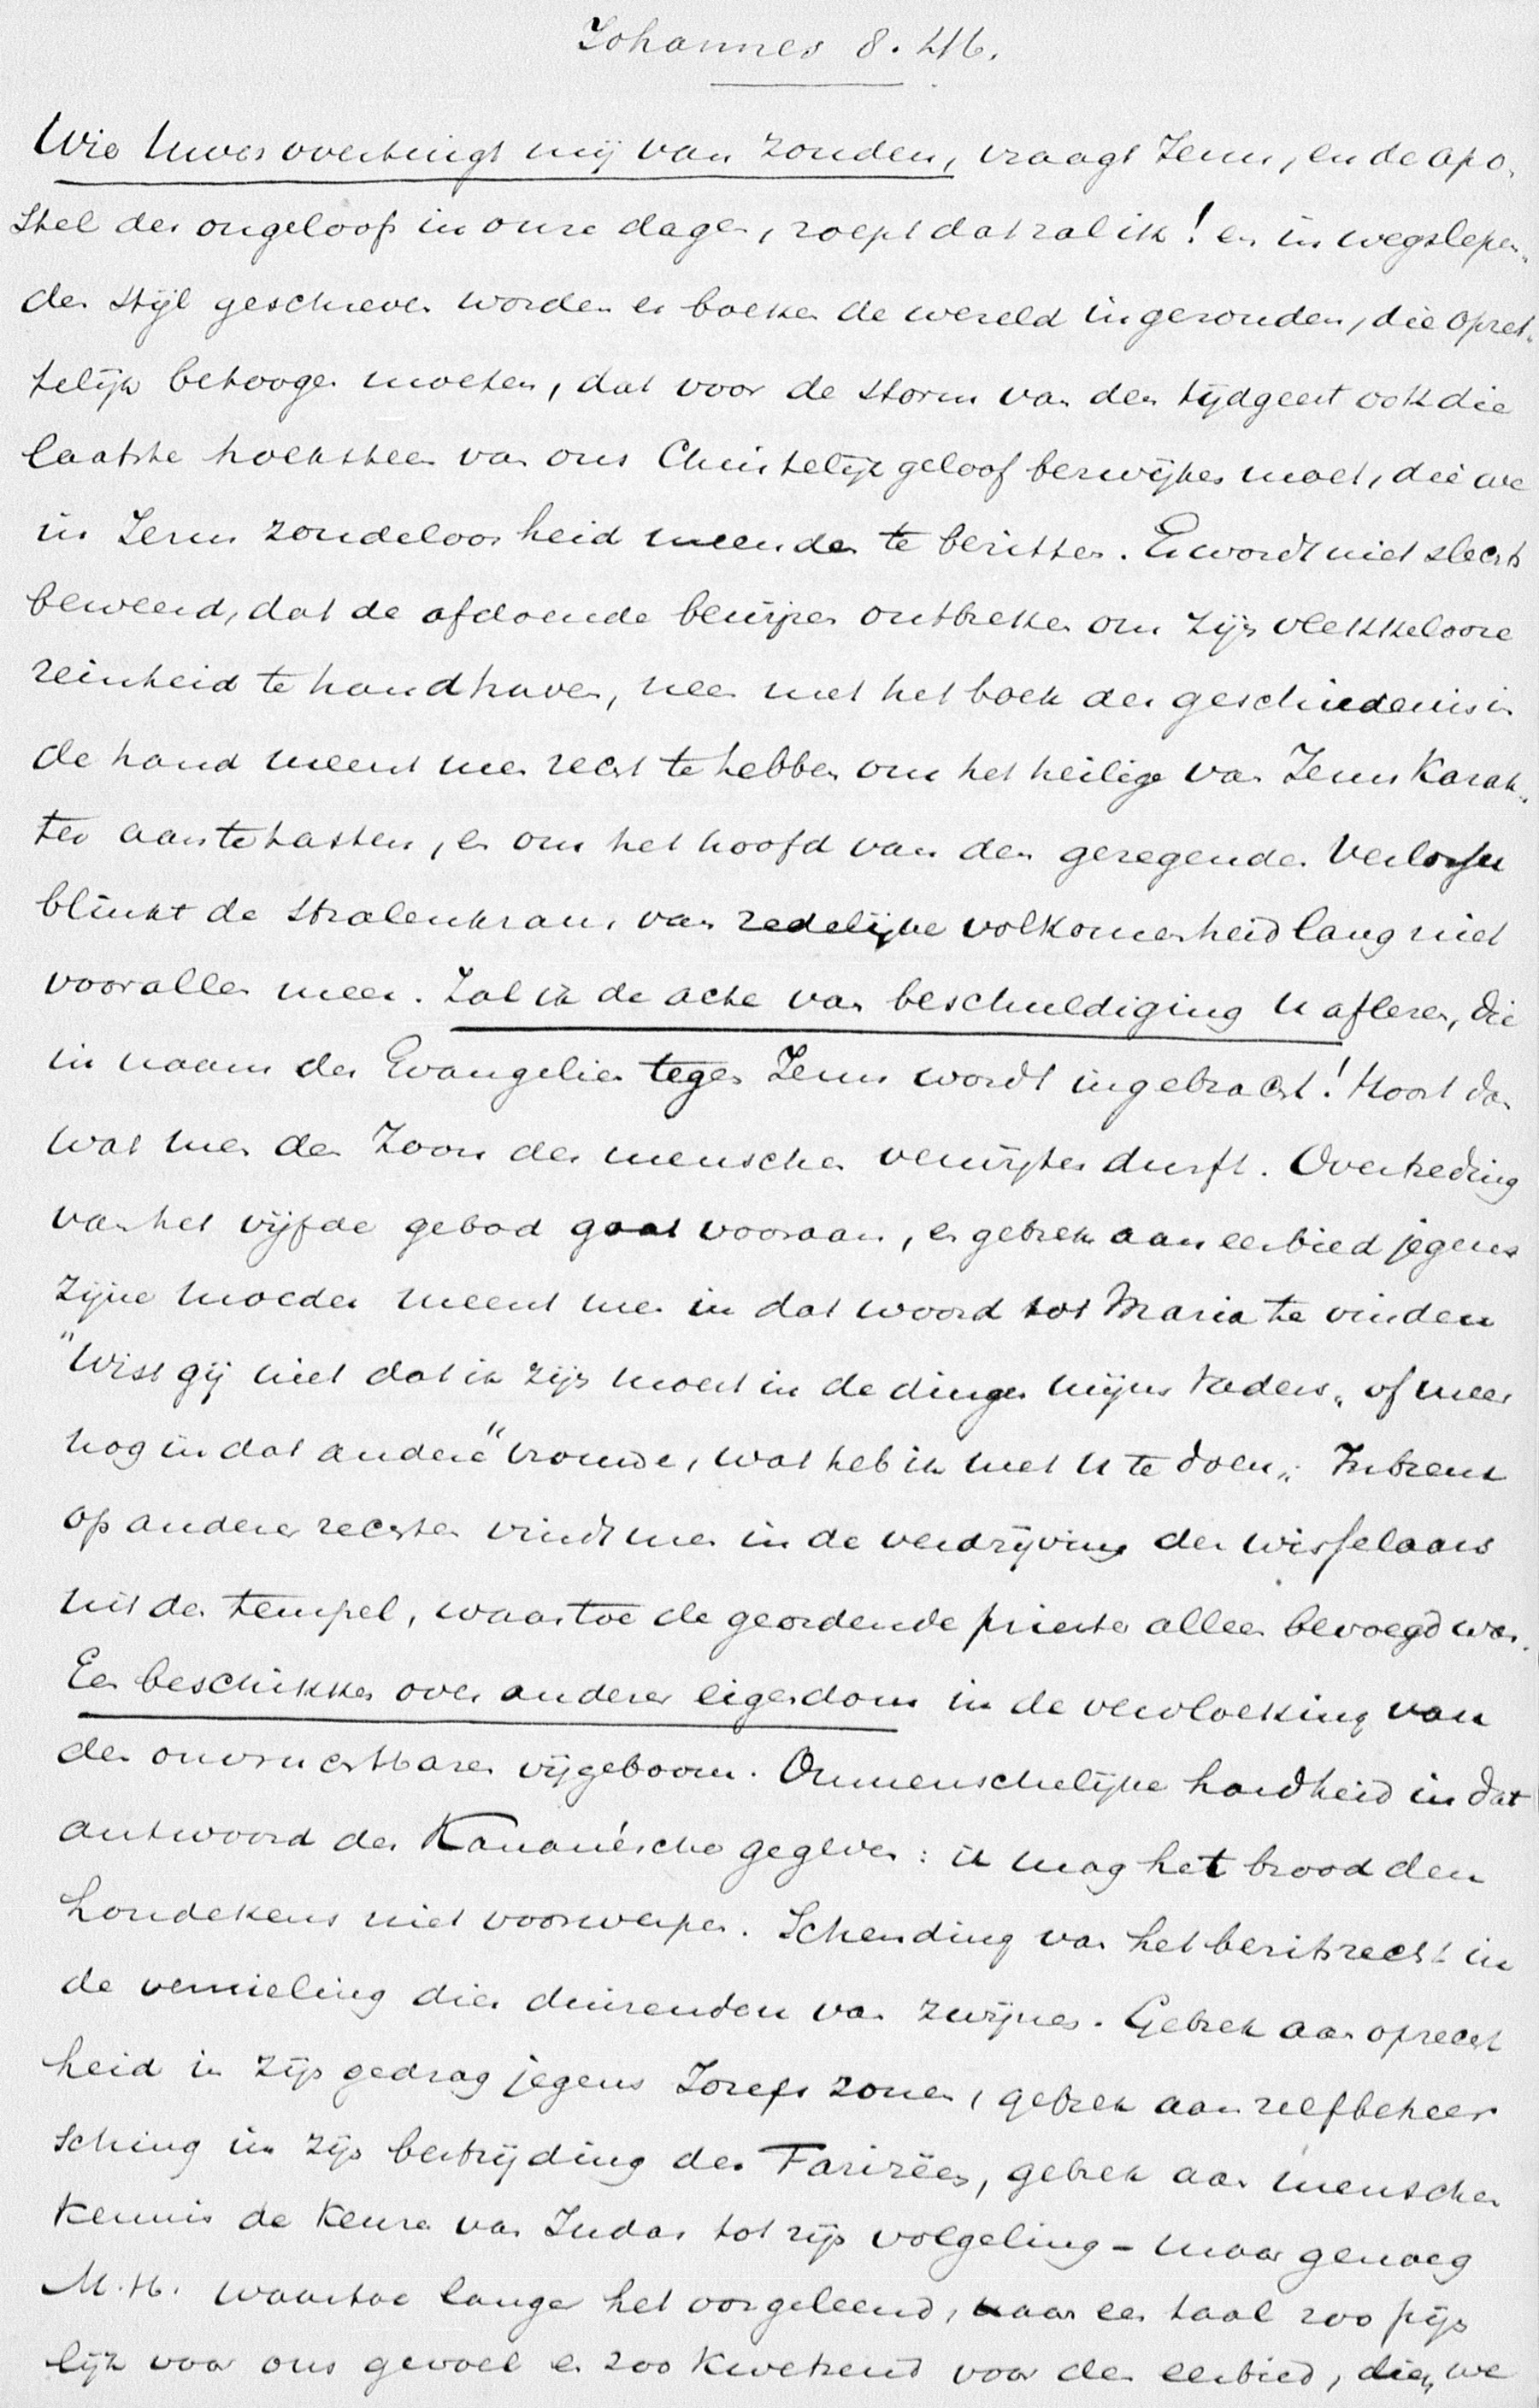 Johannes 8.46.
Wie Uwer overtuigt mij van zonden, vraagt Jezus, en de apo-
stel des ongeloofs in onze dagen, roept dat zal ik! en in wegslepen-
den stijl geschreven worden er boeken de wereld ingezonden, die opzet-
telijk betoogen moeten, dat voor de storm van den tijdgeest ook die
laatste hoeksteen van ons Christelijk geloof bezwijken moet, die we
in Jezus zondeloosheid meenden te bezitten. Er wordt niet slechts
beweerd, dat de afdoende bewijzen ontbreken om zijn vlekkelooze
reinheid te handhaven, neen met het boek der geschiedenis in
de hand meent men recht te hebben om het heilige van Jezus Karak-
ter aan te tasten, en om het hoofd van den gezegenden Verlosser
blinkt de stralenkrans van zedelijke volkomenheid lang niet
voor allen meer. Zal ik de acte van beschuldiging U aflezen, die
in naam der Evangelien tegen Jezus wordt ingebracht! Hoort dan
wat men den Zoon des menschen verwijten durft. Overtreding
van het vijfde gebod gaat vooraan, en gebrek aan eerbied jegens
zijne moeder meent men in dat woord tot Maria te vinden
"Wist gij niet dat ik zijn moest in de dingen mijns Vaders„ of meer
nog in dat andere "vrouwe, wat heb ik met U te doen„. Inbreuk
op anderer rechten vindt men in de verdrijving der wisselaars
uit den tempel, waartoe de geordende priester alleen bevoegd was.
Een beschikken over anderer eigendom in de vervloeking van
den onvruchtbaren vijgeboom. Onmenschelijke hardheid in dat
antwoord der Kananésche gegeven: ik mag het brood den
hondekens niet voorwerpen. Schending van het bezitsrecht in
de vernieling dier duizenden van zwijnen. Gebrek aan oprecht
heid in zijn gedrag jegens Jozefs zonen, gebrek aan zelfbeheer
sching in zijn bestrijding der Farizëen, gebrek aan menschen
kennis de keuze van Judas tot zijn volgeling - maar genoeg
M.H. waartoe langer het oor geleend, aan een taal zoo pijn
lijk voor ons gevoel en zoo kwetsend voor den eerbied, dien we